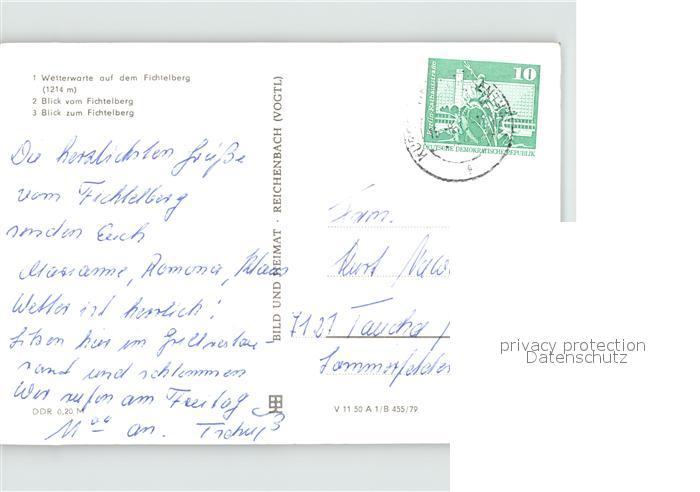 1 Wetterwarte auf dem Fichtelberg
(1214 m)
2 Blick vom Fichtelberg
3 Blick zum Fichtelberg
Die herzlichsten Grüße
vom Fichtelberg
senden Euch
Marianne, Ramona, Klaus
Wetter ist herrlich!
Sitzen hier im Grillrestau-
rant und schlemmen
Wir rufen am Freitag
11⁰⁰ an. Tschüß
DDR 0,20 M
BILD UND HEIMAT · REICHENBACH (VOGTL)
V 11 50 A 1/B 455/79
10
Berlin-Rathausstraße
DEUTSCHE DEMOKRATISCHE REPUBLIK
Fam.
Kurt
7127 Taucha
Sommerfelder
privacy protection
Datenschutz